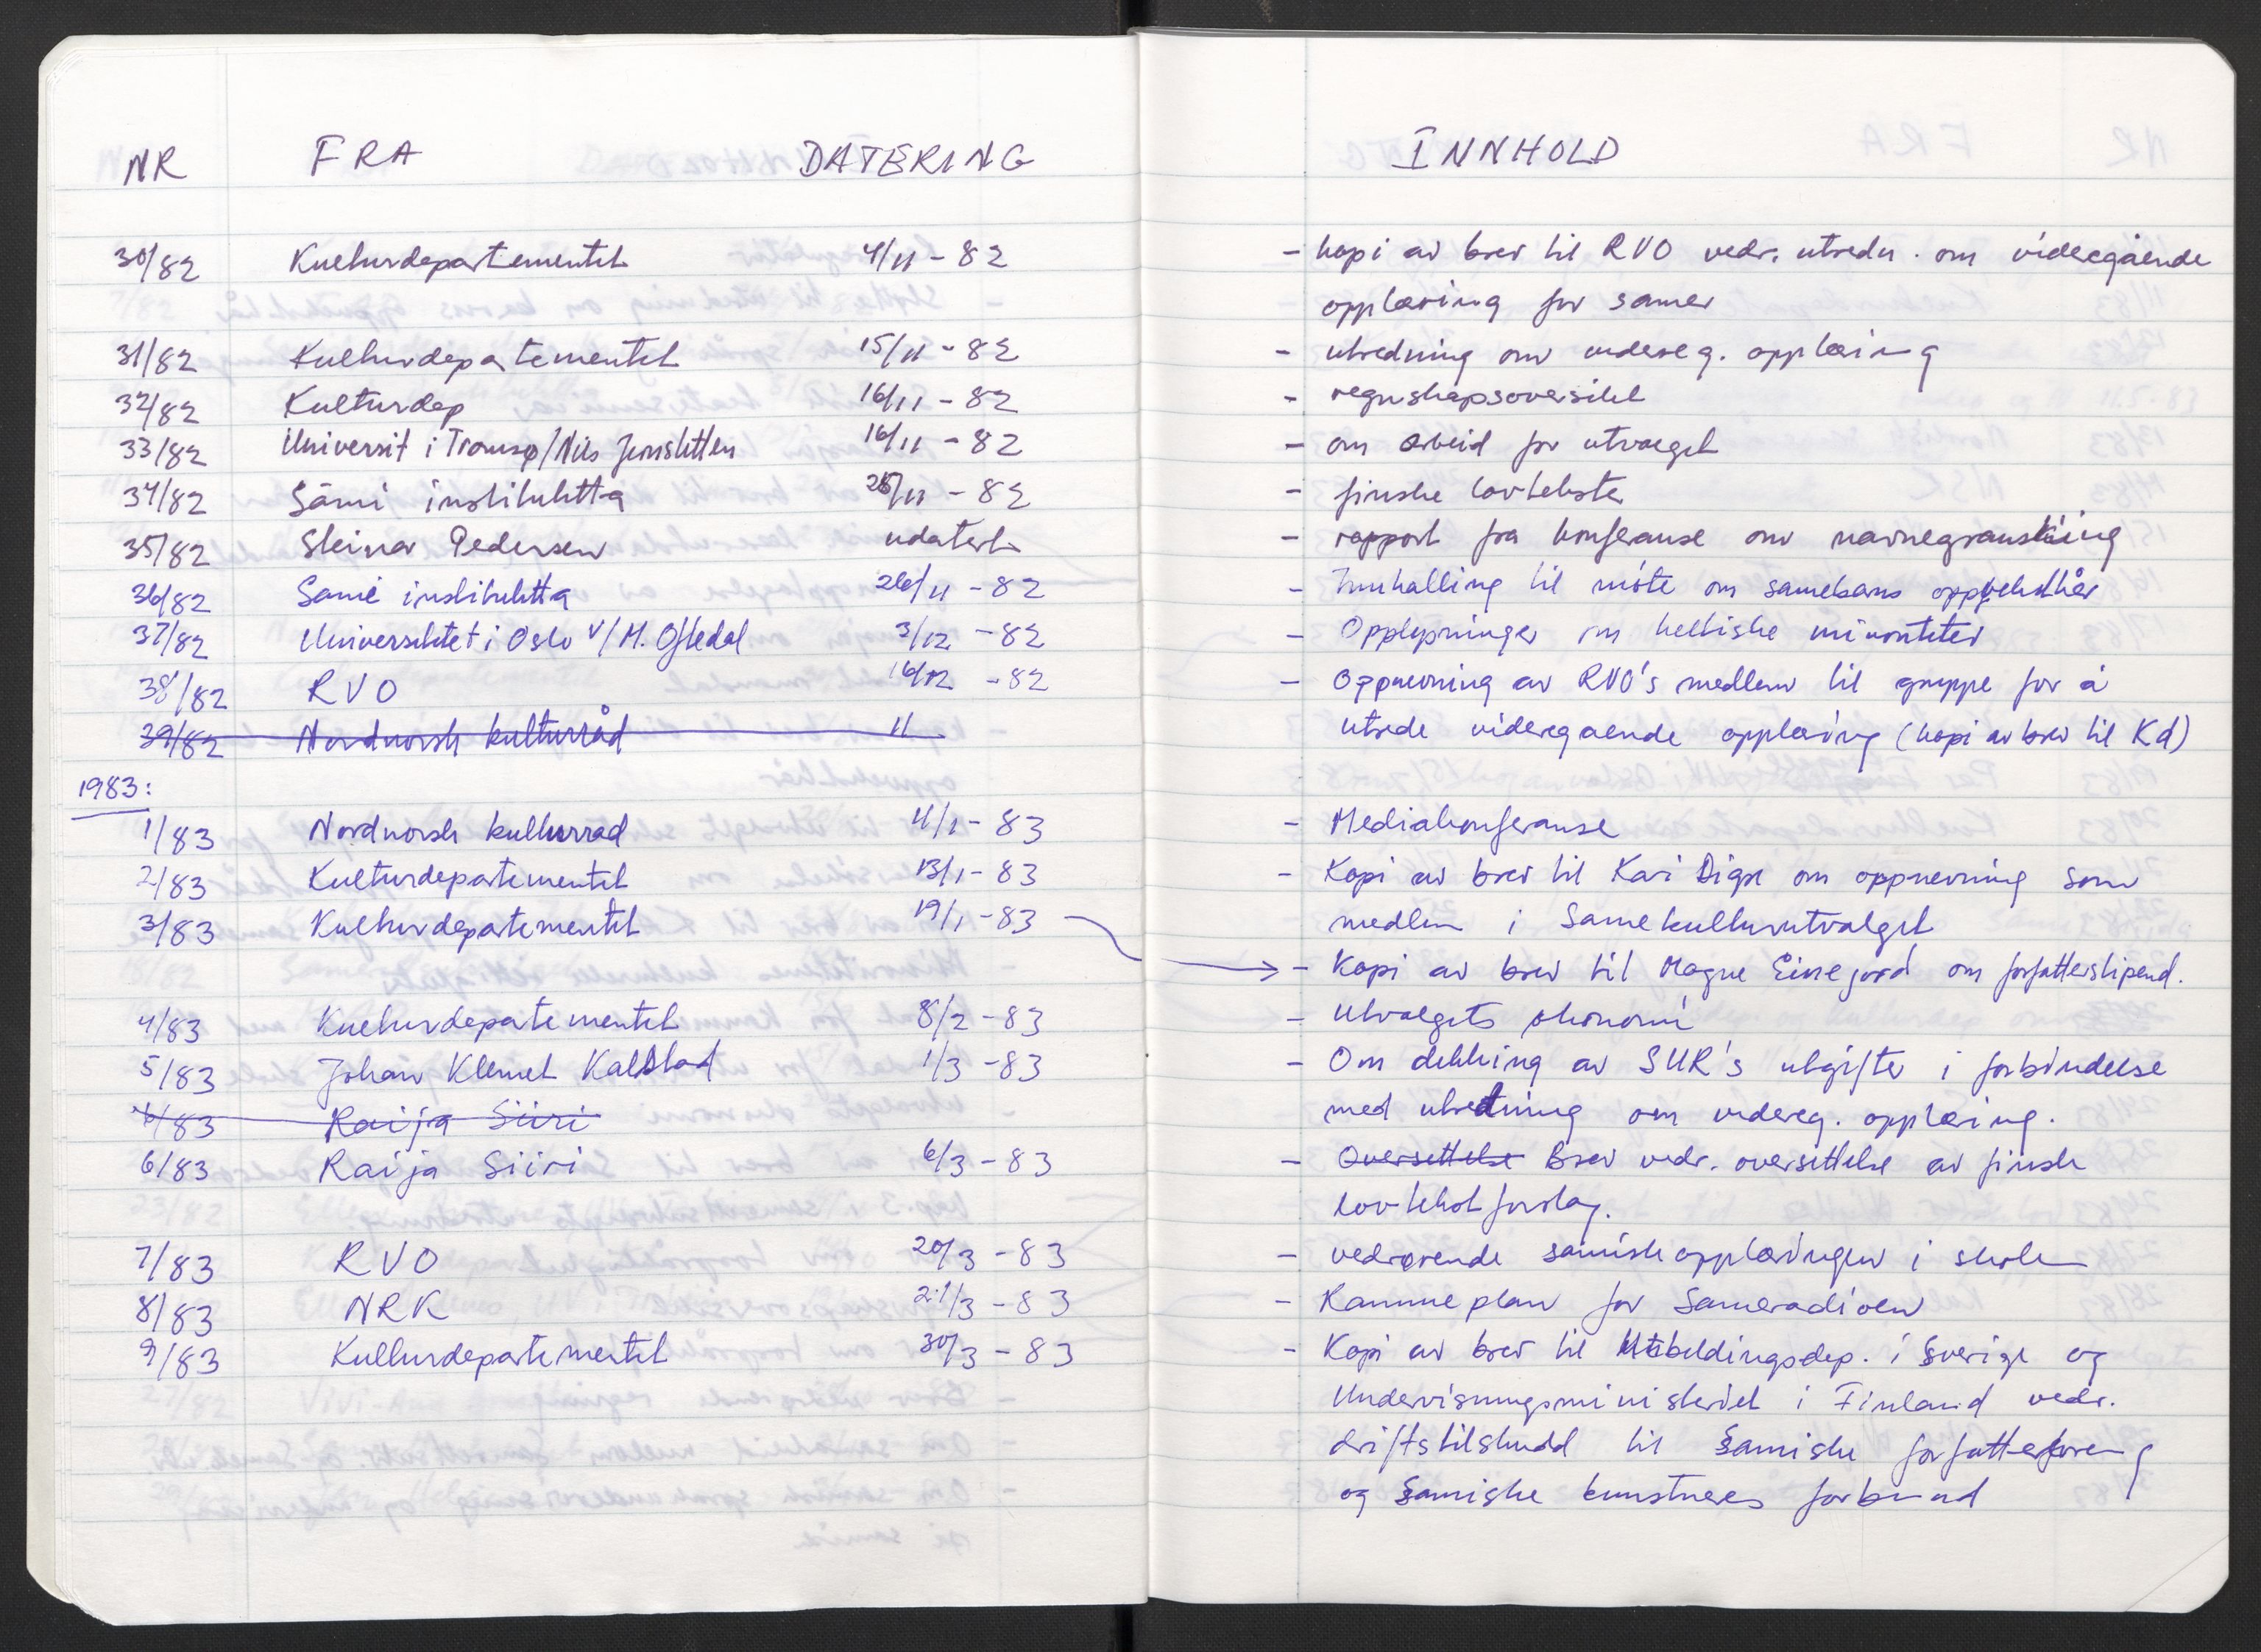 NR FRA DATERING INNHOLD
30/82 Kulturdepartementet 4/11 - 82 - kopi av brev til RVO vedr. utredn. om videregående
opplæring for samer
31/82 Kulturdepartementet 15/11 - 82 - utredning om videreg. opplæring
32/82 Kulturdep 16/11 - 82 - regnskapsoversikt
33/82 Universit i Tromsø/Nils Jernsletten 16/11 - 82 - om arbeid for utvalget
34/82 Sámi instituhtta 25/11 - 82 - finske lovtekster
35/82 Steinar Pedersen udatert - rapport fra konferanse om navnegransking
36/82 Sami instituhtta 26/11 - 82 - Innkalling til møte om samebarns oppvekstkår
37/82 Universitetet i Oslo v/M. Oftedal 3/12 - 82 - Opplysninger om keltiske minoriteter
38/82 RVO 16/12 - 82 - Oppnevning av RVO's medlem til gruppe for å
39/82 Nordnorsk kulturråd 11 utrede videregaende opplæring (kopi av brev til Kd)
1983:
1/83 Nordnorsk kulturrad 11/1 - 83 - Mediakonferanse
2/83 Kulturdepartementet 13/1 - 83 - Kopi av brev til Kari Digre om oppnevning som
3/83 Kulturdepartementet 19/1 - 83 medlem i Samekulturutvalget
- Kopi av brev til Magne Einejord om forfatterstipend.
4/83 Kulturdepartementet 8/2 - 83 - Utvalgets økonomi
5/83 Johan Klemet Kalstad 1/3 - 83 - Om dekking av SUR's utgifter i forbindelse
6/83 Raija Siiri med utredning om videreg. opplæring.
6/83 Raija Siiri 6/3 - 83 - Oversettelse Brev vedr. oversettelse av finsk
lovtekstforslag.
7/83 RVO 20/3 - 83 - vedrørende samiskopplæringen i skolen
8/83 NRK 21/3 - 83 - Rammeplan for Sameradioen
9/83 Kulturdepartementet 30/3 - 83 - Kopi av brev til Utbildingsdep. i Sverige og
Undervisningsministeriet i Finland vedr.
driftstilskudd til Samiske forfatterforening
og Samiske kunstneres forbund